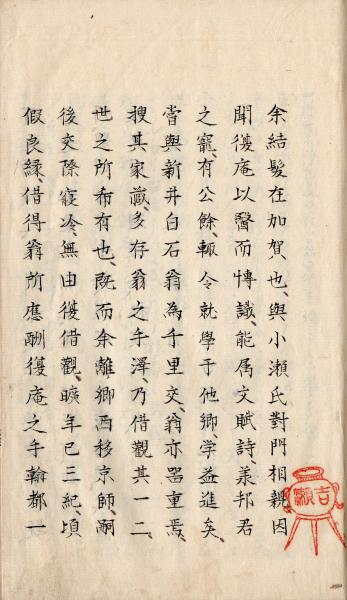 余結髮在加賀也、與小瀬氏對門相親因
聞復庵以醫而博識、能属文賦詩、兼邦君
之寵、有公餘、輙令就學于他郷、学益進矣、
嘗與新井白石翁為千里交、翁亦器重焉、
搜其家藏、多存翁之手澤、乃借觀其一二、
世之所希有也、既而余離郷西移京師、嗣
後交際寝冷、無由復借觀、曠年已三紀、頃
假良縁、借得翁所應酬復庵之手翰都一